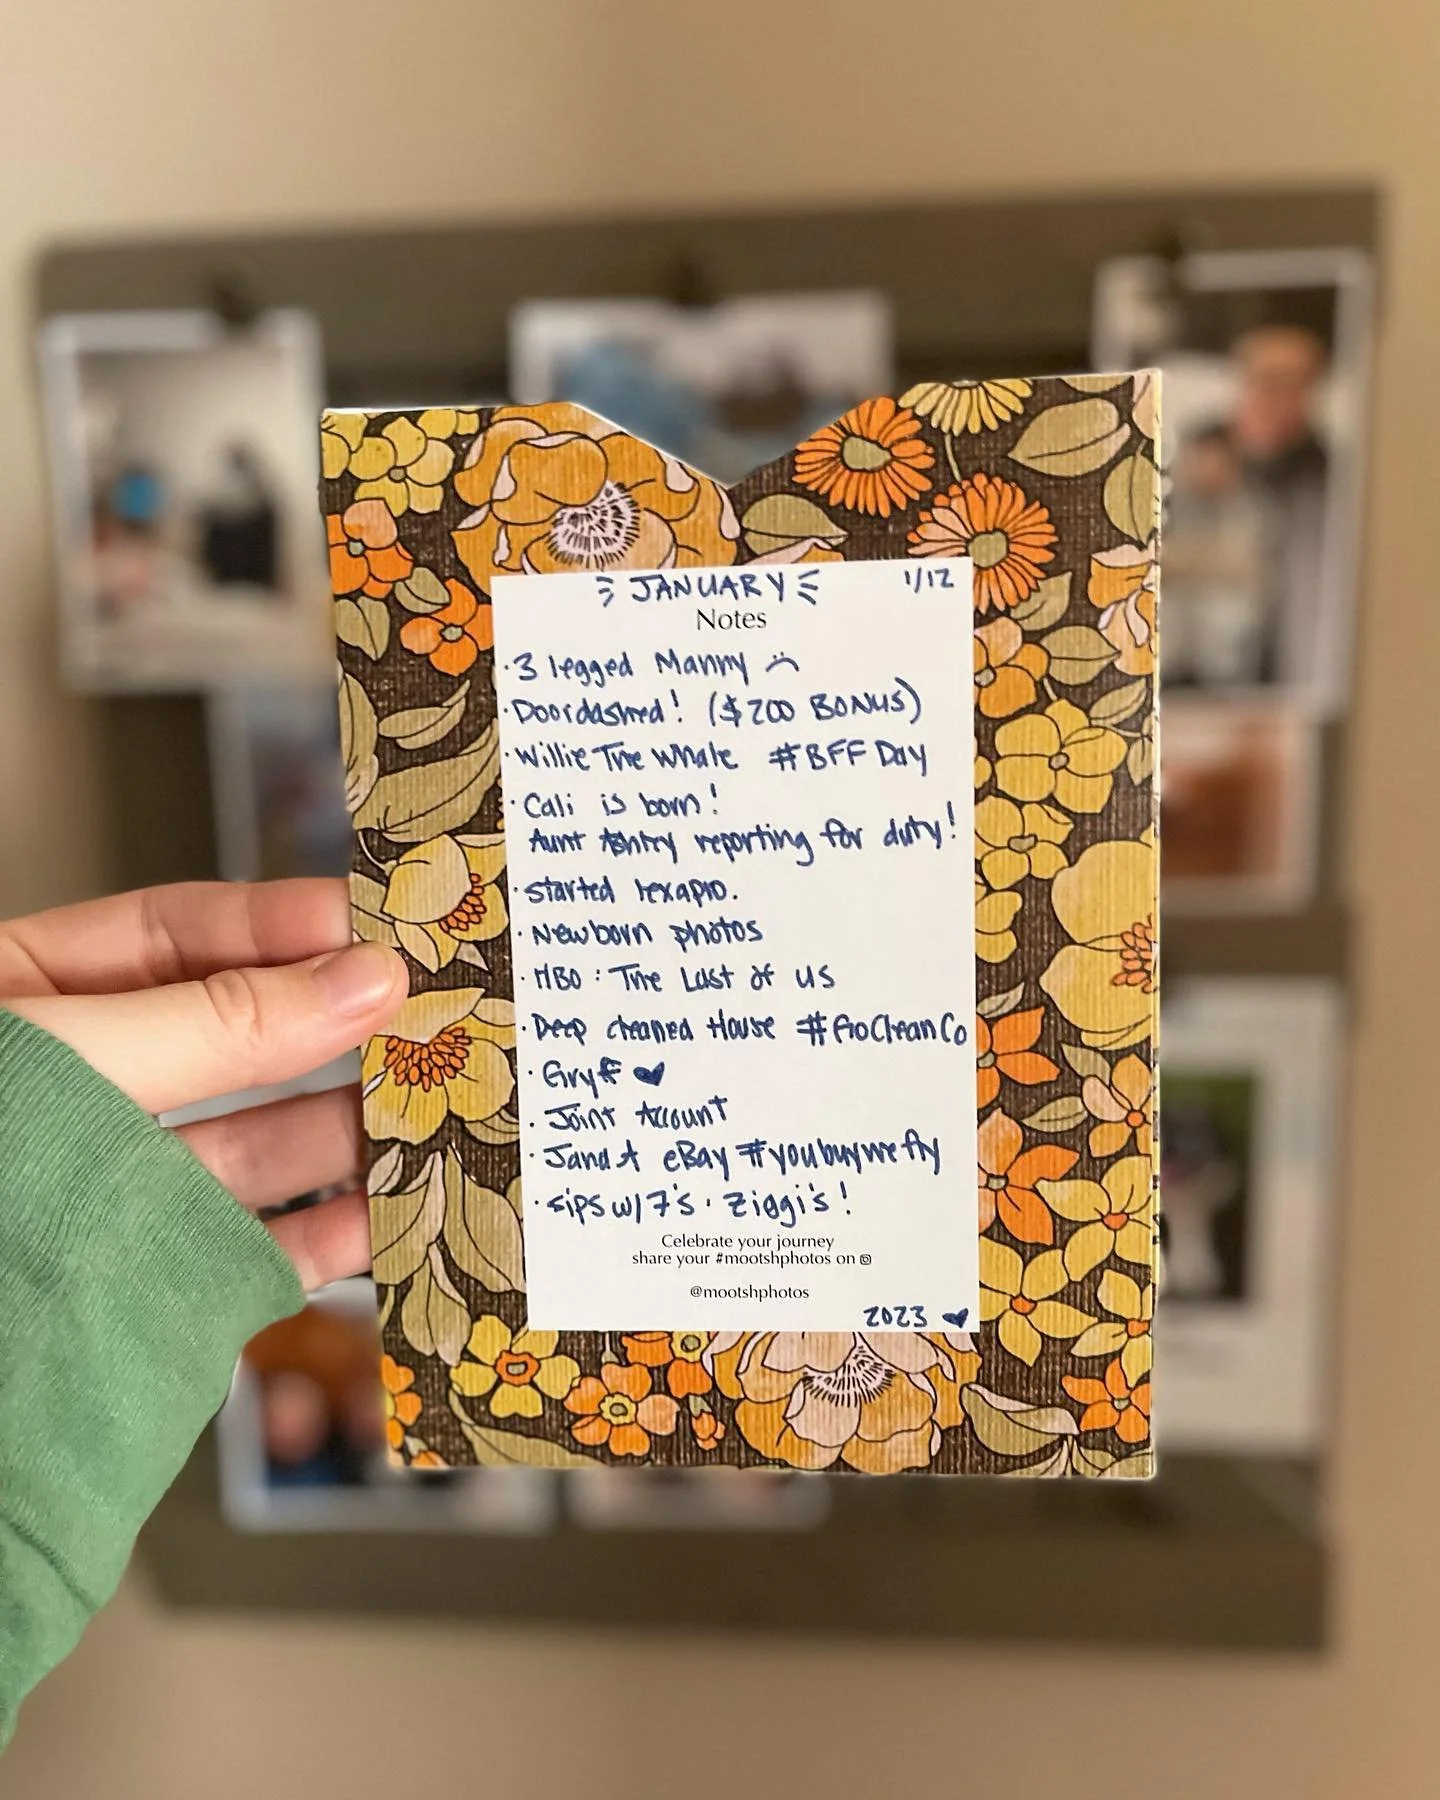 JANUARY 1/12
Notes
· 3 legged Manny ☹
· Doordashed! ($200 BONUS)
· Willie The Whale #BFF Day
· Cali is born!
Aunt Ashley reporting for duty!
· started lexapro.
· Newborn photos
· HBO: The Last of us
· Deep cleaned House #GoCleanCo
· Gryff ♥
· Joint Account
· J and A eBay #youbuywefly
· sips w/ 7's · Ziggi's!
Celebrate your journey
share your #mootshphotos on
@mootshphotos
2023 ♥